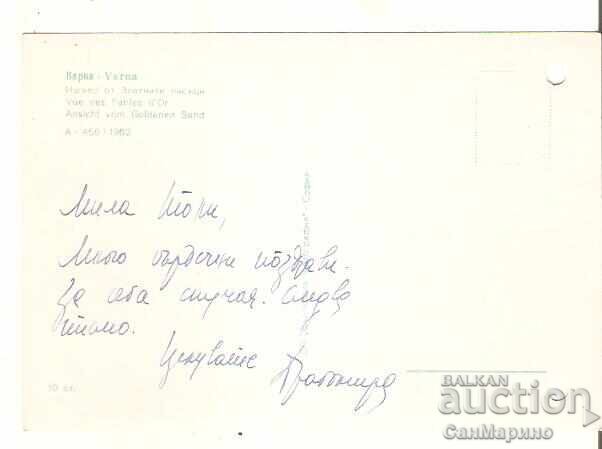 Варна - Varna
Изглед от Златните пясъци
Vue des Sables d'Or
Ansicht vom Goldenen Sand
А - 456 / 1962
Мила Тони,
Много сърдечни поздрави.
За сега случая. Следва
писмо.
Целувайте
София
10 ст.
BALKAN
auction
СанМарино